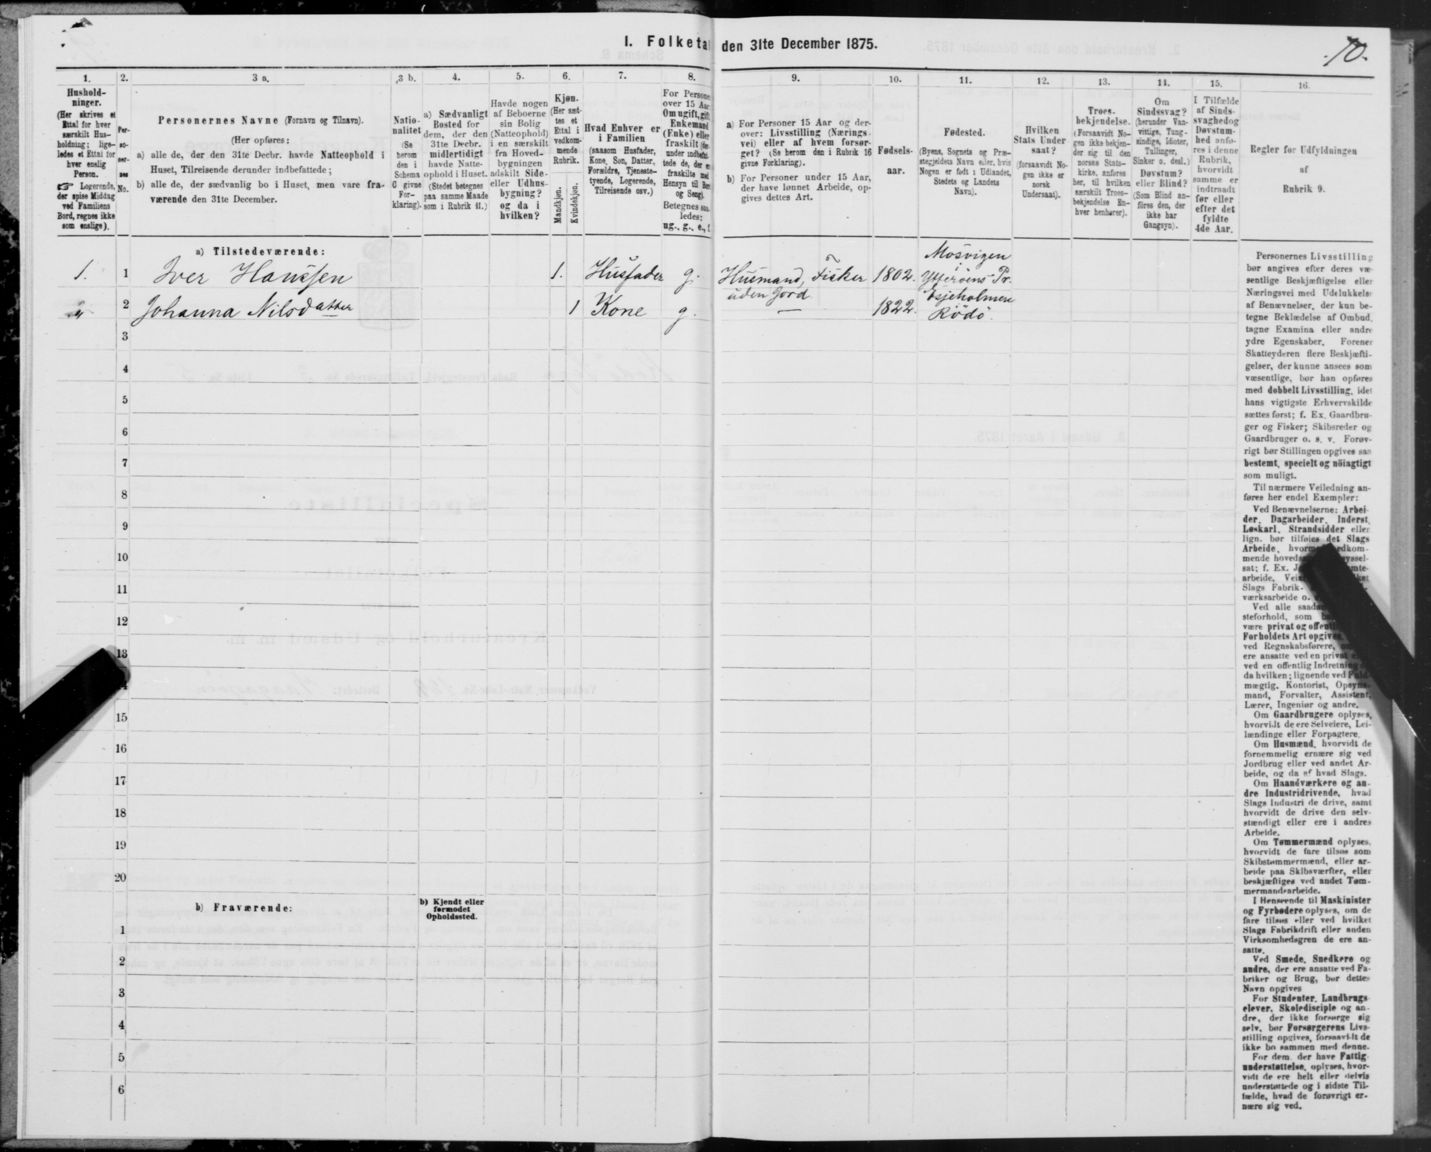 I. Folketa den 31te December 1875.
70.
1.
Hushold-
ninger.
(Her skrives et
Ettal for hver
særskilt Hus-
holdning; lige-
ledes et Ettal for
hver enslig
Person.
Logerende,
der spise Middag
ved Familiens
Bord, regnes ikke
som enslige).
2.
Per-
so-
ner-
nes
No.
3 a.
Personernes Navne (Fornavn og Tilnavn).
(Her opføres:
a) alle de, der den 31te Decbr. havde Natteophold i
Huset, Tilreisende derunder indbefattede;
b) alle de, der sædvanlig bo i Huset, men vare fra-
værende den 31te December.
3 b.
Natio-
nalitet
(Se
herom
den i
Schema
C givne
For-
klaring).
4.
a) Sædvanligt
Bosted for
dem, der den
31te Decbr.
midlertidigt
havde Natte-
ophold i Huset.
(Stedet betegnes
paa samme Maade
som i Rubrik 11.)
5.
Havde nogen
af Beboerne
sin Bolig
(Natteophold)
i en særskilt
fra Hoved-
bygningen
adskilt Side-
eller Udhus-
bygning?
og da i
hvilken?
6.
Kjøn.
(Her sæt-
tes et
Ettal i
vedkom-
mende
Rubrik.
Mandkjøn.
Kvindekjøn.
7.
Hvad Enhver er
i Familien
(saasom Husfader,
Kone, Søn, Datter,
Forældre, Tjeneste-
tyende, Logerende,
Tilreisende osv.)
8.
For Persone
over 15 Aar
Om ugift, gift
Enkemand
(Enke) eller
fraskilt
Betegnes saa-
ledes:
ug., g., e., f.
9.
a) For Personer 15 Aar og der-
over: Livsstilling (Nærings-
vei) eller af hvem forsør-
get? (Se herom den i Rubrik 16
givne Forklaring).
b) For Personer under 15 Aar,
der have lønnet Arbeide, op-
gives dettes Art.
10.
Fødsels-
aar.
11.
Fødested.
(Byens, Sognets og Præ-
stegjeldets Navn eller, hvis
Nogen er født i Udlandet,
Stedets og Landets
Navn).
12.
Hvilken
Stats Under
saat?
(forsaavidt No-
gen ikke er
norsk
Undersaat).
13.
Troes-
bekjendelse.
(Forsaavidt No-
gen ikke bekjen-
der sig til den
norske Stats-
kirke, anføres
her, til hvilken
særskilt Troes-
bekjendelse En-
hver henhører).
14.
Om
Sindssvag?
(herunder Van-
vittige, Tung-
sindige, Idioter,
Tullinger,
Sinker o. desl.)
Døvstum?
eller Blind?
(Som Blind an-
føres den, der
ikke har
Gangsyn).
15.
I Tilfælde
af Sinds-
svaghed og
Døvstum-
hed anfø-
res i denne
Rubrik,
hvorvidt
samme er
indtraadt
før eller
efter det
fyldte
4de Aar.
16.
Regler for Udfyldningen
af
Rubrik 9.
a) Tilstedeværende:
1. 1 Iver Hanssen 1. Husfader g. Husmand, Fisker uden Jord 1802. Mosvigen i Ytterøens Pr.
" 2 Johanna Nilsdatter 1 Kone g. — 1822. Esjeholmen Rødø.
3
4
5
6
7
8
9
10
11
12
13
4
15
16
17
18
19
20
b) Fraværende:
b) Kjendt eller
formodet
Opholdssted.
1
2
3
4
5
6
Personernes Livsstilling
bør angives efter deres væ-
sentlige Beskjæftigelse eller
Næringsvei med Udelukkelse
af Benævnelser, der kun be-
tegne Beklædelse af Ombud,
tagne Examina eller andre
ydre Egenskaber. Forener
Skatteyderen flere Beskjæfti-
gelser, der kunne ansees som
væsentlige, bør han opføres
med dobbelt Livsstilling, idet
hans vigtigste Erhvervskilde
sættes først; f. Ex. Gaardbru-
ger og Fisker; Skibsreder og
Gaardbruger o. s. v. Forøv-
rigt bør Stillingen opgives saa
bestemt, specielt og nöiagtigt
som muligt.
Til nærmere Veiledning an-
føres her endel Exempler:
Ved Benævnelserne: Arbei-
der, Dagarbeider, Inderst,
Løskarl, Strandsidder eller
lign. bør tilføies det Slags
Arbeide,
mende
sat; f. Ex.
arbeide,
Slags Fabrik-
værksarbeide o.
Ved alle
steforhold, som
være privat og
Forholdets Art
ved Regnskabsførere,
ere ansatte ved en
ved en offentlig Indretning
da hvilken; lignende ved
mægtig, Kontorist,
mand, Forvalter, Assistent,
Lærer, Ingeniør og andre.
Om Gaardbrugere oplyses,
hvorvidt de ere Selveiere, Lei-
lændinge eller Forpagtere.
Om Husmænd, hvorvidt de
fornemmelig ernære sig ved
Jordbrug eller ved andet Ar-
beide, og da af hvad Slags.
Om Haandværkere og an-
dre Industridrivende, hvad
Slags Industri de drive, samt
hvorvidt de drive den selv-
stændigt eller ere i andres
Arbeide.
Om Tømmermænd oplyses,
hvorvidt de fare tilsøs som
Skibstømmermænd, eller ar-
beide paa Skibsværfter, eller
beskjæftiges ved andet Tøm-
mermandsarbeide.
I Henseende til Maskinister
og Fyrbødere oplyses, om de
fare tilsøs eller ved hvilket
Slags Fabrikdrift eller anden
Virksomhedsgren de ere an-
satte.
Ved Smede, Snedkere og
andre, der ere ansatte ved Fa-
briker og Brug, bør dettes
Navn opgives
For Studenter, Landbrugs-
elever, Skoledisciple og an-
dre, der ikke forsørge sig
selv, bør Forsørgerens Livs-
stilling opgives, forsaavidt de
ikke bo sammen med denne.
For dem, der have Fattig-
understøttelse, oplyses, hvor-
vidt de ere helt eller delvis
understøttede og i sidste Til-
fælde, hvad de forøvrigt er-
nære sig ved.